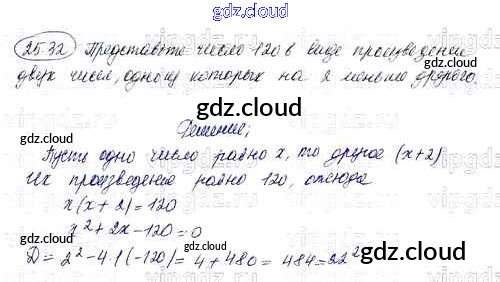 gdz.cloud
gdz.cloud
25.32 Представьте число 120 в виде произведения
двух чисел, одно из которых на 2 меньше другого.
gdz.cloud
gdz.cloud
Решение;
gdz.cloud
Пусть одно число равно x, то другое (x+2)
gdz.cloud
Их произведение равно 120, отсюда
gdz.cloud
x(x+2)=120
gdz.cloud
x²+2x-120=0
gdz.cloud
D=2²-4·1(-120)=4+480=484=22²
gdz.cloud